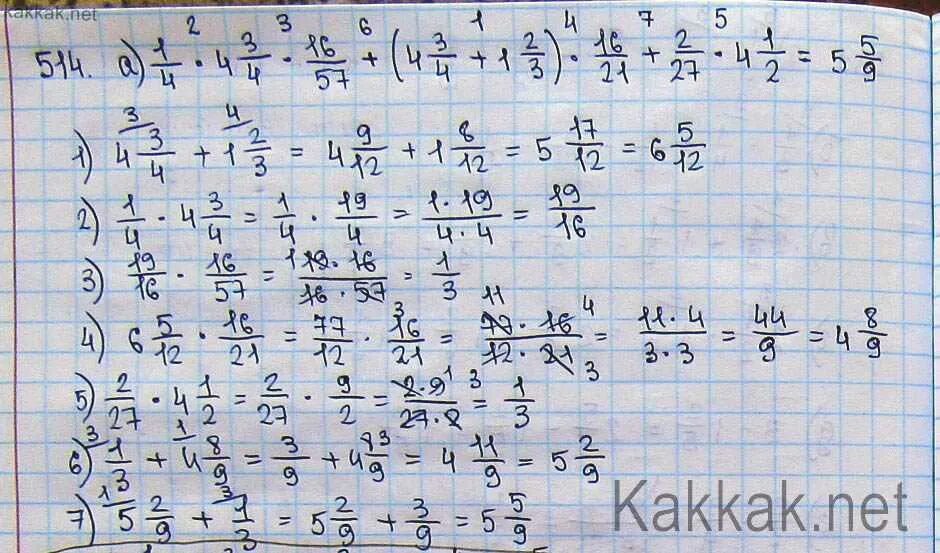 Kakkak.net
2 3 6 1 4 7 5
514. а) 1/4 · 4 3/4 · 16/57 + (4 3/4 + 1 2/3) · 16/21 + 2/27 · 4 1/2 = 5 5/9
3 4
1) 4 3/4 + 1 2/3 = 4 9/12 + 1 8/12 = 5 17/12 = 6 5/12
2) 1/4 · 4 3/4 = 1/4 · 19/4 = 1·19/4·4 = 19/16
3) 19/16 · 16/57 = 1 19·16/16·57 = 1/3
11 4
4) 6 5/12 · 16/21 = 77/12 · 16/21 = 77·16/12·21 = 11·4/3·3 = 44/9 = 4 8/9
3 3
5) 2/27 · 4 1/2 = 2/27 · 9/2 = 2·9/27·2 = 1/3
1 3
3 1
6) 1/3 + 4 8/9 = 3/9 + 4 8/9 = 4 11/9 = 5 2/9
1 3
7) 5 2/9 + 1/3 = 5 2/9 + 3/9 = 5 5/9
Kakkak.net